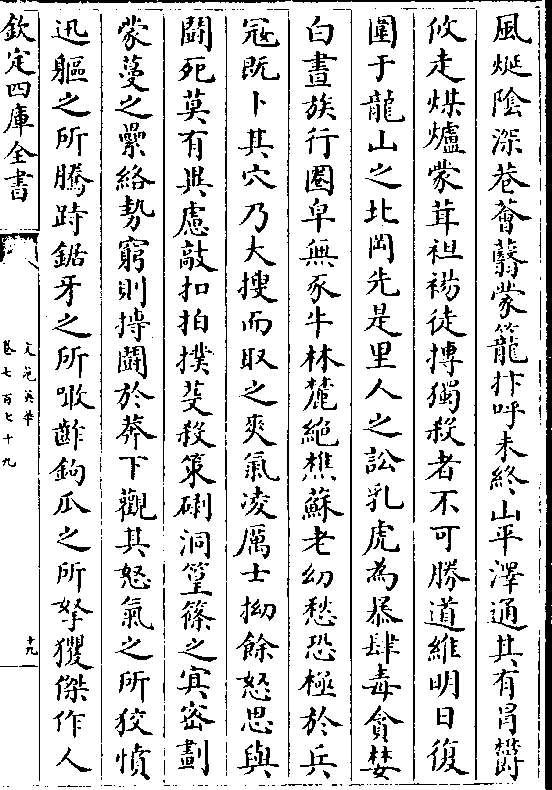 風烻隂深巷薈蘙蒙籠抃呼未終山平澤通其有冐欝
攸走煤爐蒙茸袒裼徒搏獨殺者不可勝道維明日復
圍于龍山之北岡先是里人之訟乳虎為暴肆毒貪婪
白晝族行圏皁無豕牛林麓絶樵蘇老幼愁恐極於兵
冦既卜其穴乃大搜而取之爽氣凌厲士拗餘怒思與
鬪死莫有與慮敲扣拍撲芟殺策𥓓洞篁篠之㝠密劃
蒙蔓之纍絡勢窮則搏鬪於莽下觀其怒氣之所狡憤
迅軀之所騰跱鋸牙之所噉齚鉤爪之所拏玃傑作人
欽定四庫全書
文苑英華
卷七百七十九
十九